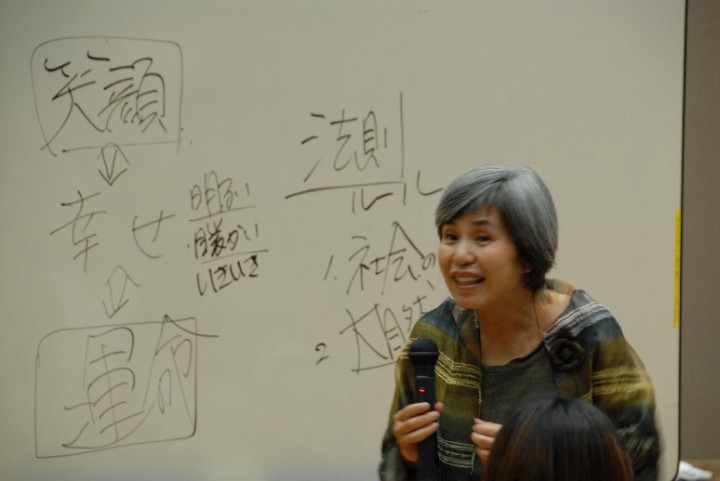 笑顔
幸せ
運命
明るい
・暖かい
いきいき
法則
ルール
1. 社会の
2 大自然